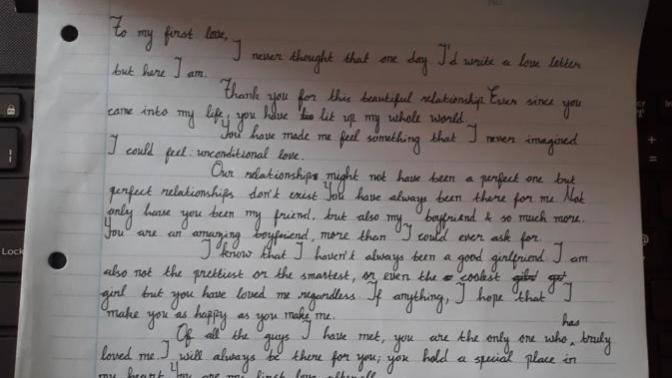 To my first love,
I never thought that one day I'd write a love letter
but here I am.
Thank you for this beautiful relationship. Ever since you
came into my life, you have lit up my whole world.
You have made me feel something that I never imagined
I could feel: unconditional love.
Our relationship might not have been a perfect one but
perfect relationships don't exist. You have always been there for me. Not
only have you been my friend, but also my boyfriend & so much more.
You are an amazing boyfriend, more than I could ever ask for.
I know that I haven't always been a good girlfriend. I am
also not the prettiest or the smartest, or even the coolest
girl but you have loved me regardless. If anything, I hope that I
make you as happy as you make me.
Of all the guys I have met, you are the only one who has truly
loved me. I will always be there for you; you hold a special place in
my heart. You are my first love afterall
Lock